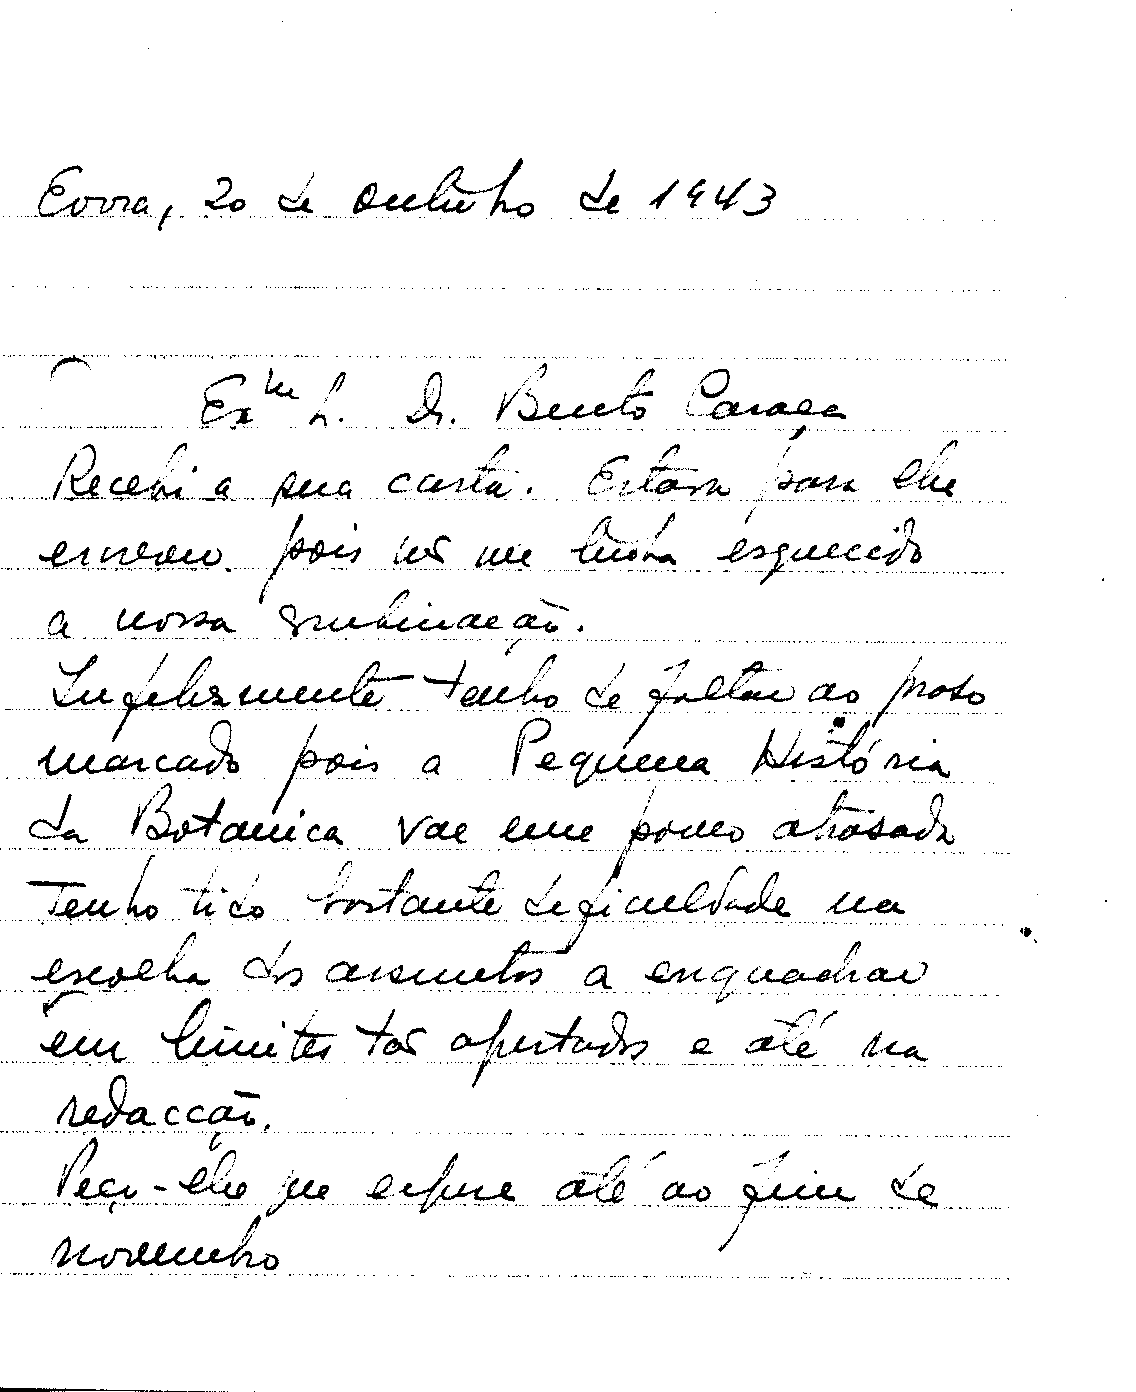 Evora, 20 de outubro de 1943
Exmo Sr. Dr. Bento Caraça
Recebi a sua carta. Estava para lhe
escrever pois não me tinha esquecido
a nossa combinação.
Infelizmente tenho de faltar ao praso
marcado pois a Pequena História
da Botanica vae um pouco atrasada
Tenho tido bastante deficuldade na
escolha dos assuntos a enquadrar
em limites tão apertados e até na
redacção.
Peço-lhe que espere até ao fim de
novembro